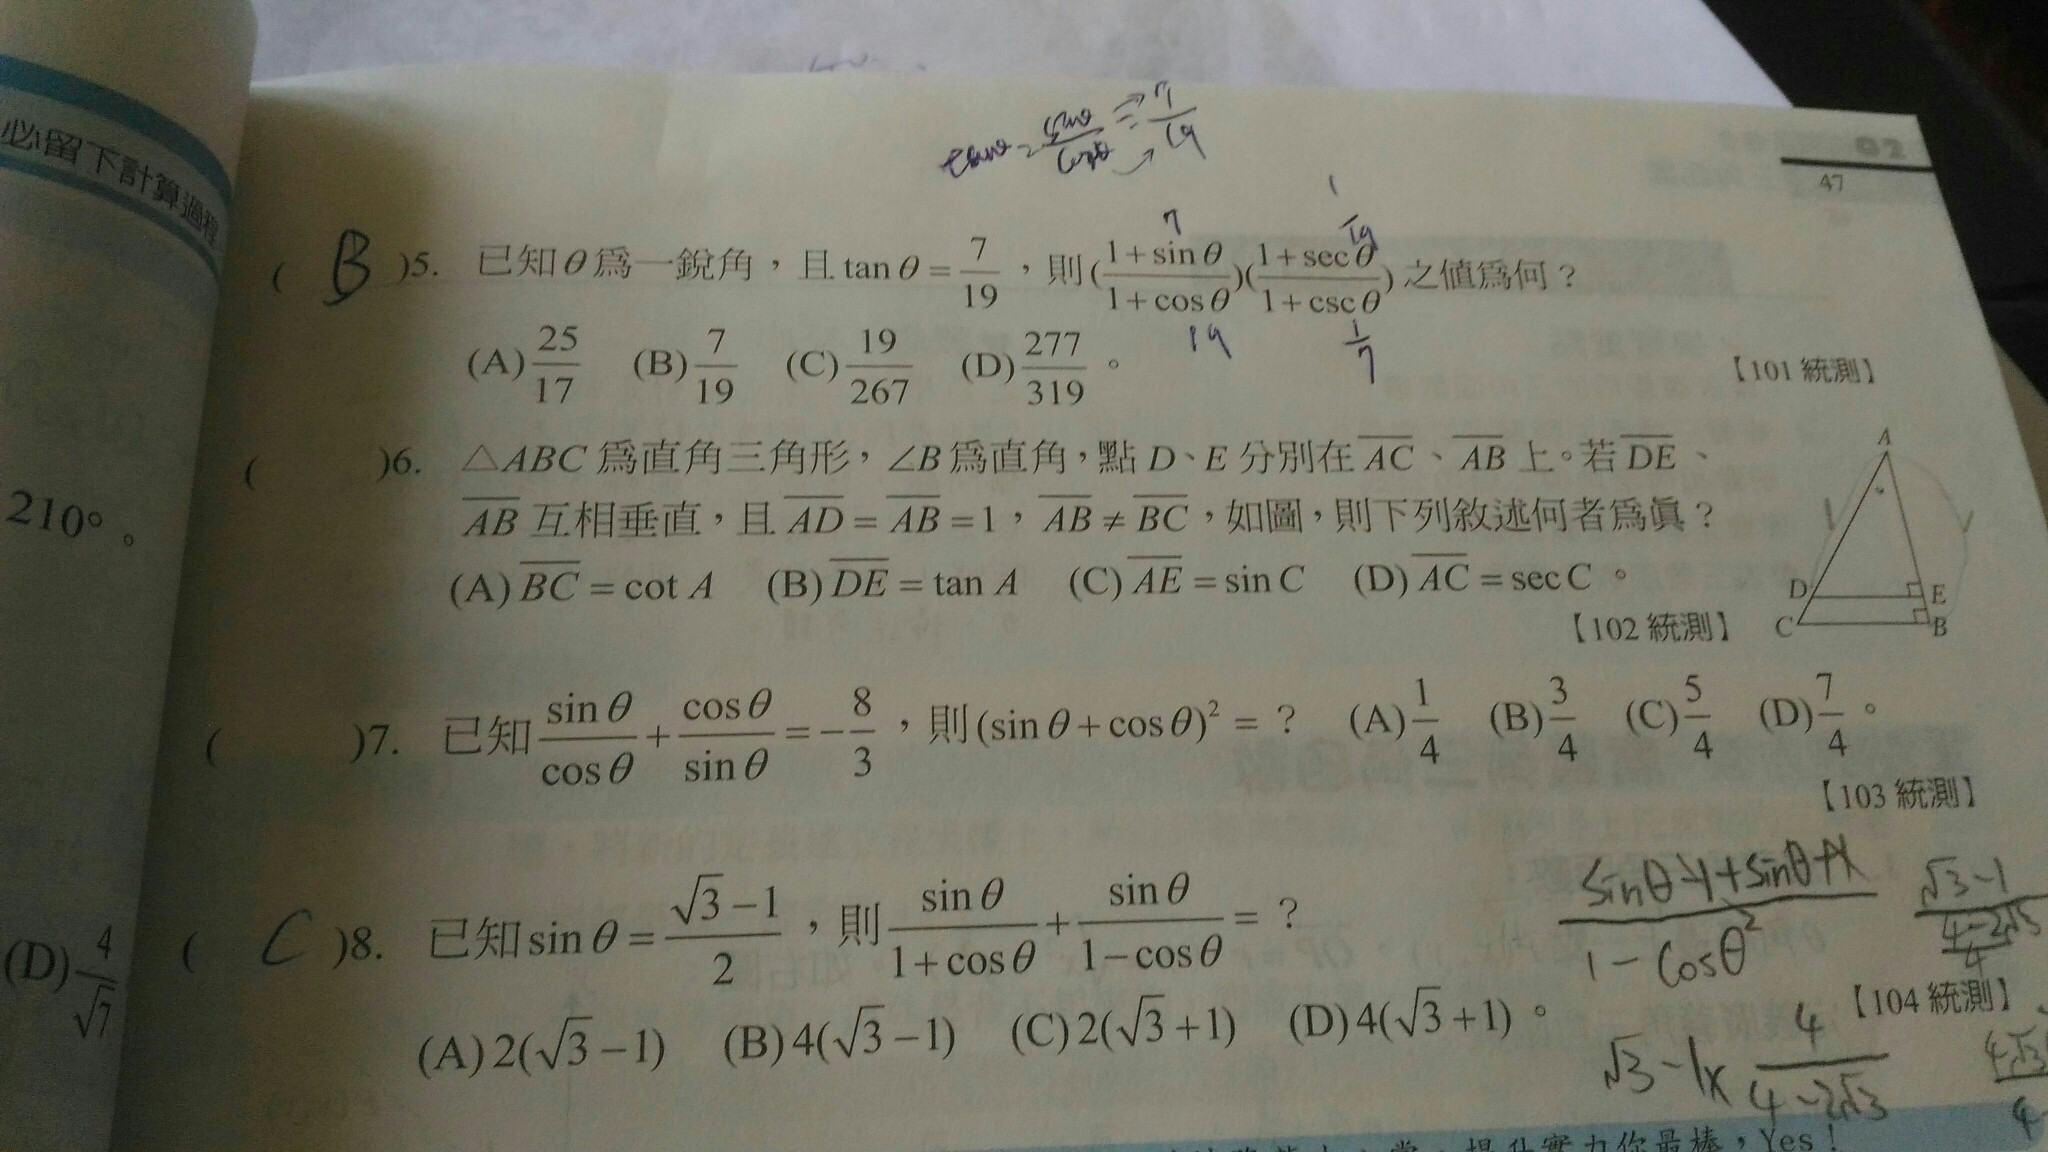 必留下計算過程
tanθ = sinθ/cosθ = 7/19
02
47
( B )5. 已知θ爲一銳角，且 tan θ = 7/19，則((1+sin θ)/(1+cos θ))((1+sec θ)/(1+csc θ)) 之値爲何？
7
19
1/19
1/7
(A) 25/17 (B) 7/19 (C) 19/267 (D) 277/319。
【101 統測】
( )6. △ABC 爲直角三角形，∠B 爲直角，點 D、E 分別在 A̅C̅、A̅B̅ 上。若 D̅E̅、
A̅B̅ 互相垂直，且 A̅D̅ = A̅B̅ = 1，A̅B̅ ≠ B̅C̅，如圖，則下列敘述何者爲眞？
(A) B̅C̅ = cot A (B) D̅E̅ = tan A (C) A̅E̅ = sin C (D) A̅C̅ = sec C。
【102 統測】
A
D
E
C
B
210°。
( )7. 已知 sin θ/cos θ + cos θ/sin θ = −8/3，則 (sin θ + cos θ)² = ？ (A) 1/4 (B) 3/4 (C) 5/4 (D) 7/4。
【103 統測】
( C )8. 已知 sin θ = (√3−1)/2，則 sin θ/(1+cos θ) + sin θ/(1−cos θ) = ？
1 − cosθ²
(√3−1)/((4−2√3)/4)
【104 統測】
(D) 4/√7
(A) 2(√3−1) (B) 4(√3−1) (C) 2(√3+1) (D) 4(√3+1)。
√3−1× 4/(4−2√3)
實力你最棒，Yes！